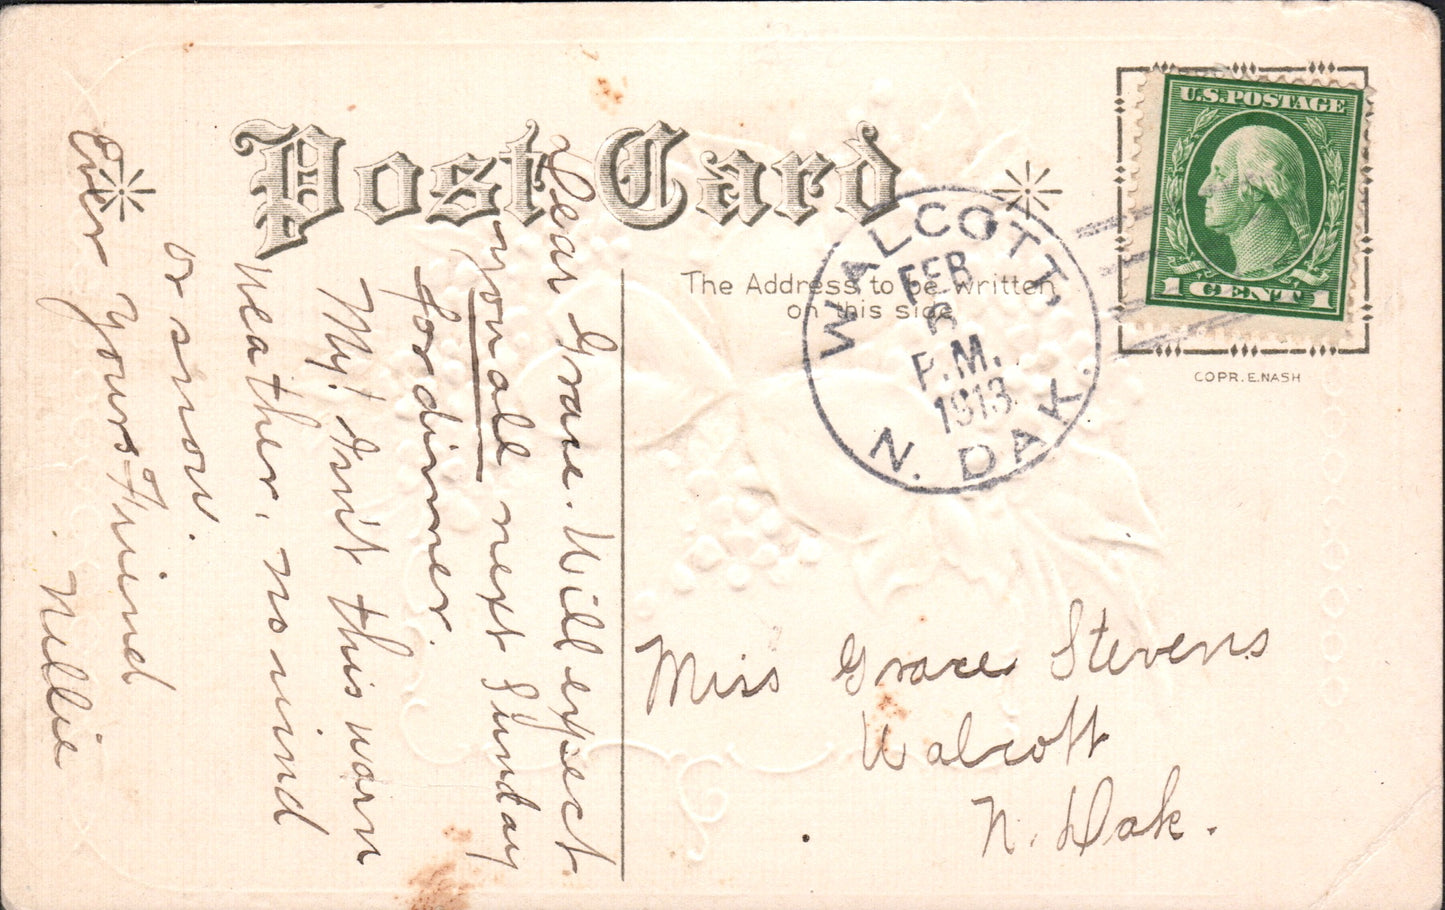 Post Card
The Address to be written
on this side
U.S. POSTAGE
1 CENT 1
COPR. E. NASH
WALCOTT,
FEB
6
P.M.
1913
N. DAK.
Dear Grace. Will expect
you all next Sunday
for dinner.
My! Isn't this warm
weather, no wind
or snow.
Ever Yours Friend
Nellie
Miss Grace Stevens
Walcott
N. Dak.